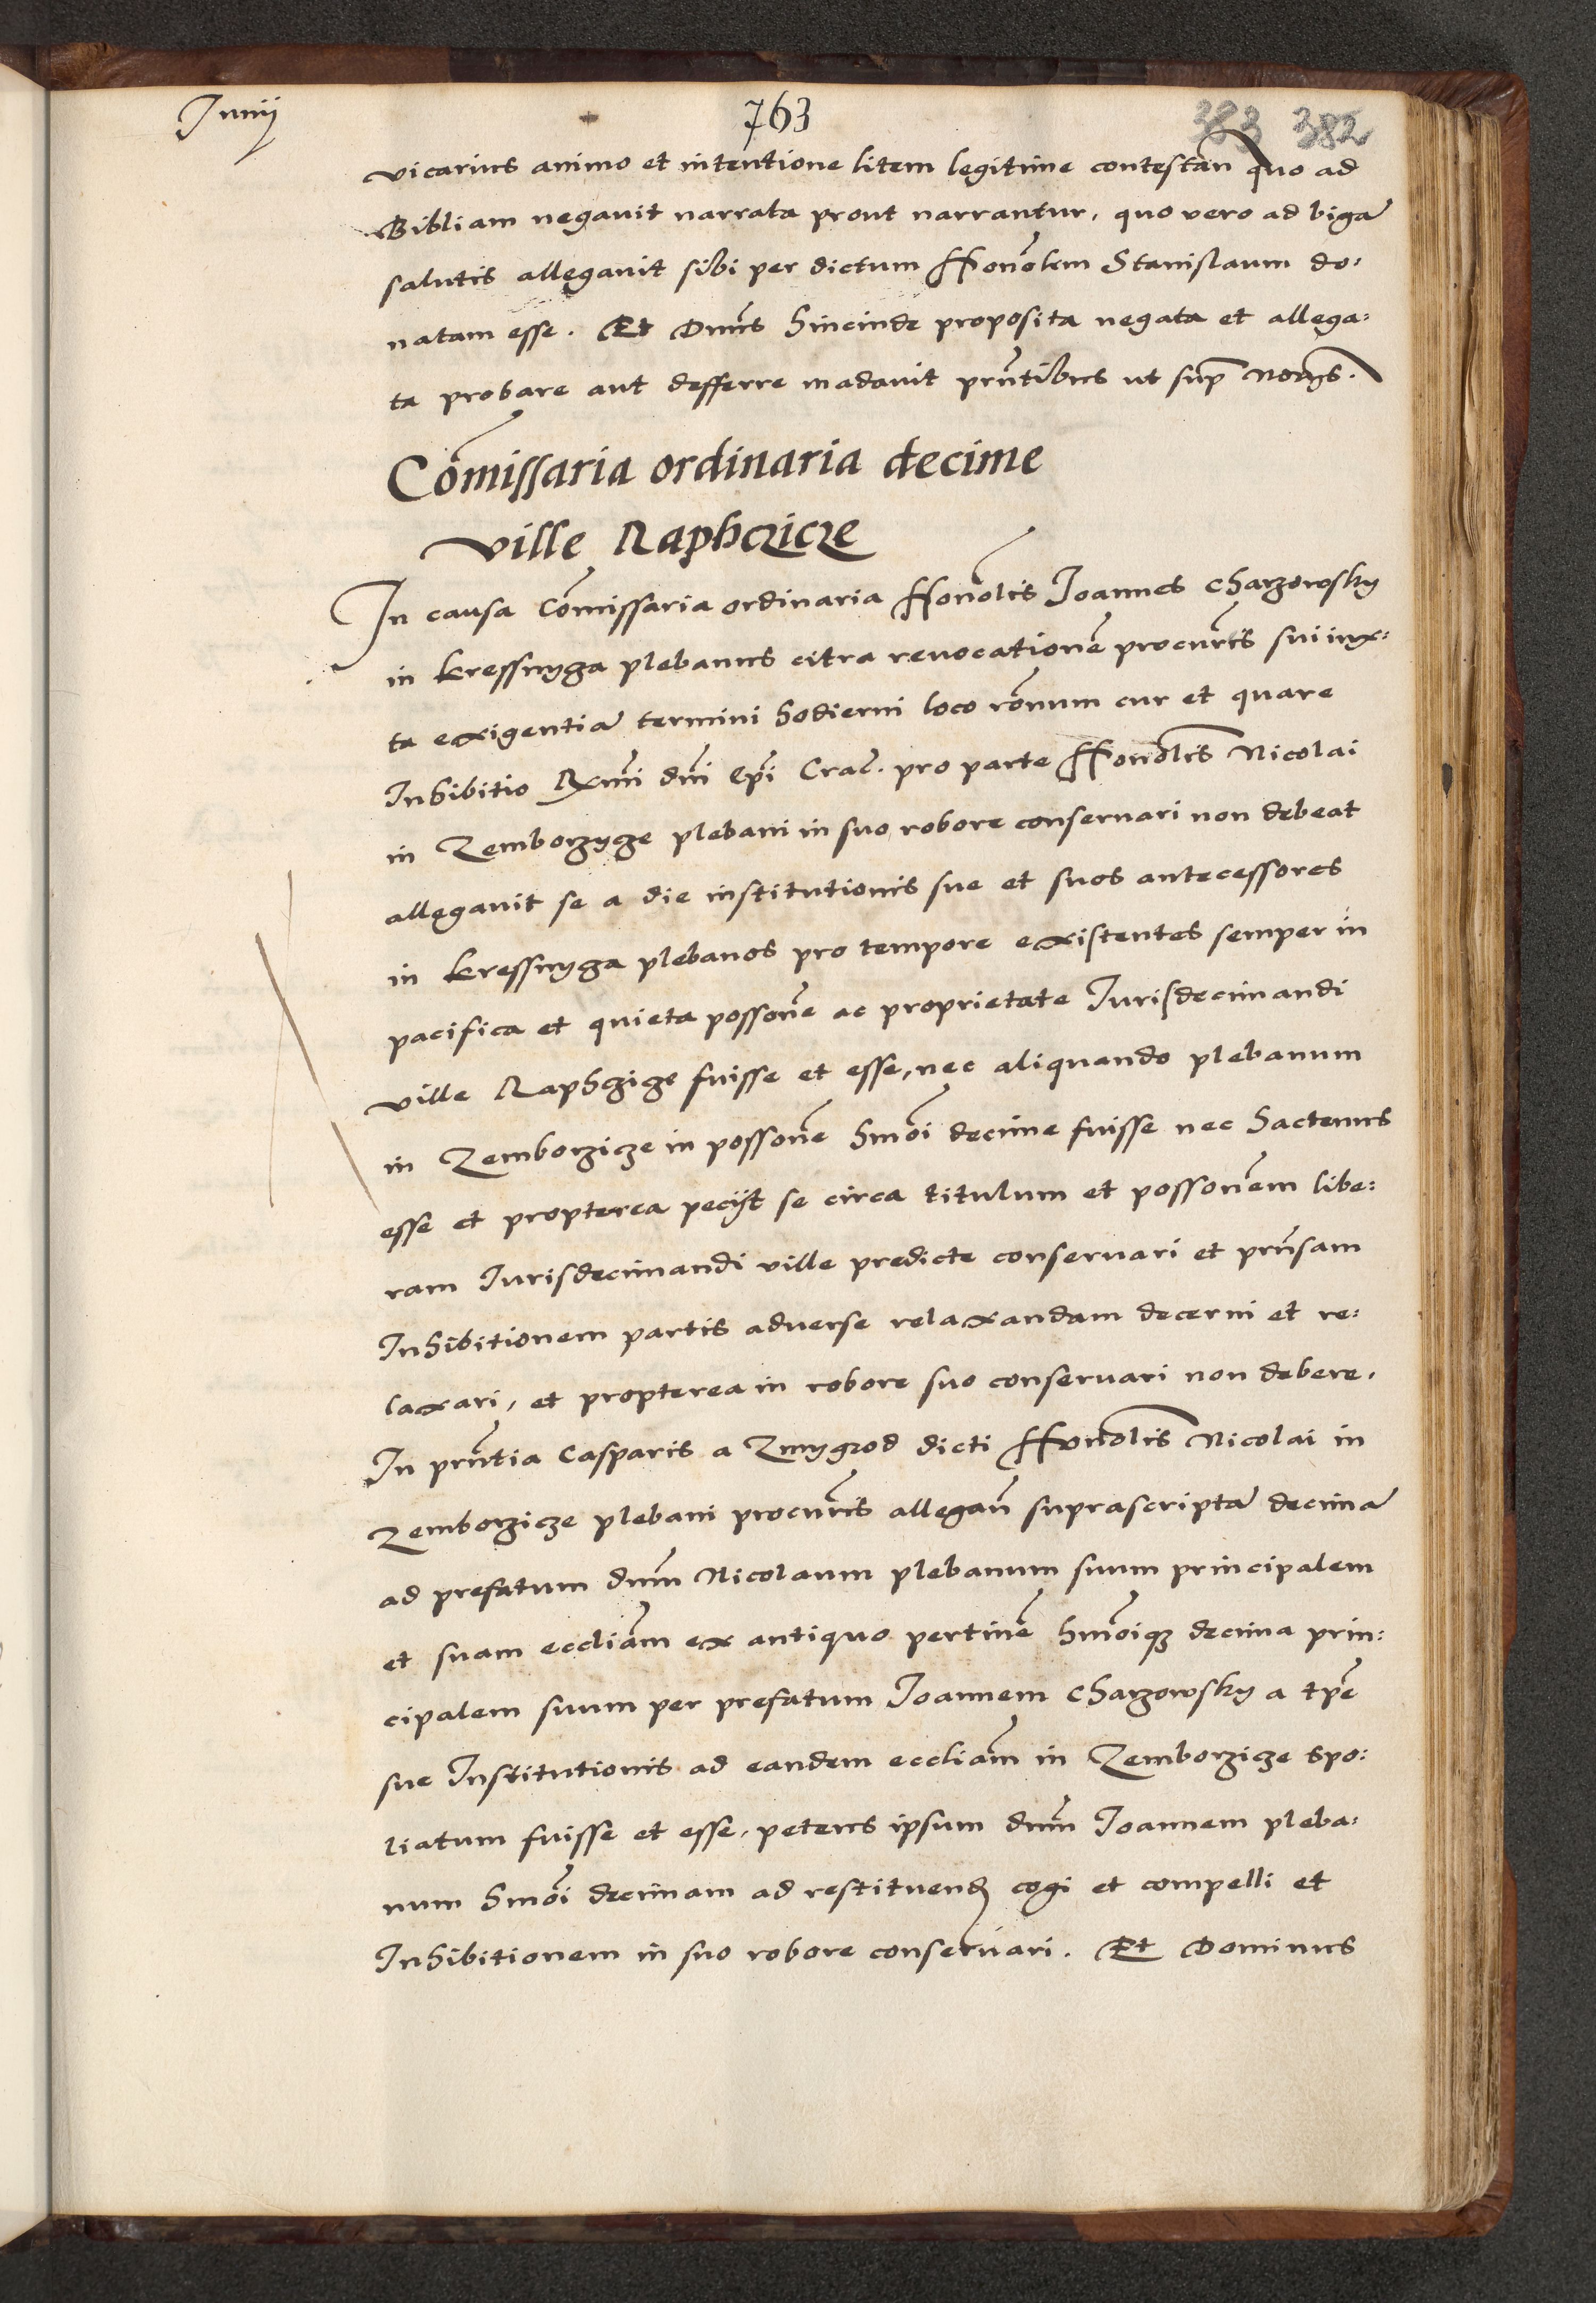 Junij
763
383 382
vicarius animo et intentione litem legitime contestan̄ quo ad
Bibliam negavit narrata prout narrantur, quo vero ad bigā
salutis allegavit sibi per dictum Honolem Stanislaum do:
natam esse. Et Dnūs hincinde proposita negata et allega:
ta probare aut defferre mādavit prn̄tibus ut sup̄
Cōmissaria ordinaria decime
ville Raphczicze
In causa Cōmissaria ordinaria Honōlis Joannes Charzowsky
in Kressnyga plebanus citra revocationē procurīs sui iux:
ta exigentiā termini hodierni loco rōnum cur et quare
Inhibitio Rx̄mi dnī Epī Crac̄. pro parte Honōlis Nicolai
in Zemborzycze plebani in suo robore conservari non debeat
allegavit se a die institutionis sue et suos antecessores
in Kressnyga plebanos pro tempore existentes semper in
pacifica et quieta possōne ac proprietate Jurisdecimandi
ville Raphczicze fuisse et esse, nec aliquando plebanum
in Zemborzicze in possōne hmōi decime fuisse nec hactenus
esse et propterea pecijt se circa titulum et possōnem libe:
ram Jurisdecimandi ville predicte conservari et prn̄sam
Inhibitionem partis adverse relaxandam decerni et re:
laxari, et propterea in robore suo conservari non debere.
In prn̄tia Casparis a Zmygrod dicti Honōlis Nicolai in
Zemborzicze plebani procurīs allegan̄ suprascriptā decimā
ad prefatum dnūm Nicolaum plebanum suum principalem
et suam eccliām ex antiquo pertinē hmōiq₃ decima prin:
cipalem suum per prefatum Joannem Charzowsky a tp̄e
sue Institutionis ad eandem eccliām in Zemborzicze spo:
liatum fuisse et esse, petens ipsum dnūm Joannem pleba:
num hmōi decimam ad restituend̄ cogi et compelli et
Inhibitionem in suo robore conservari. Et Dominus